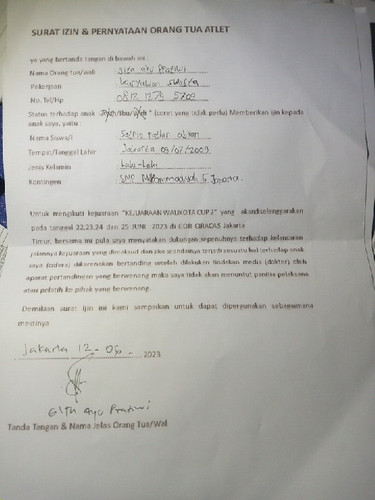 SURAT IZIN & PERNYATAAN ORANG TUA ATLET
ya yang bertanda tangan di bawah ini :
Nama Orang tua/wali : Gita Ayu Pratiwi
Pekerjaan : karyawan swasta
No. Tel/Hp : 0812 1279 5709
Status terhadap anak : Ayah/Ibu/Wali * (coret yang tidak perlu) Memberikan ijin kepada
anak saya, yaitu :
Nama Siswa/i
Tempat/Tanggal Lahir : Jakarta 09/02/2009
Jenis Kelamin : Laki-Laki
Kontingen : SMP Muhammadiyah
Untuk mengikuti kejuaraan "KEJUARAAN WALIKOTA CUP 2" yang akan diselenggarakan
pada tanggal 22,23,24 dan 25 JUNI 2023 di GOR CIRACAS Jakarta
Timur, bersama ini pula saya menyatakan dukungan sepenuhnya terhadap kelancaran
jalannya kejuaraan yang dimaksud dan jika seandainya terjadi sesuatu hal terhadap anak
saya (cidera) dikarenakan bertanding setelah dilakukan tindakan medis (dokter) oleh
aparat pertandingan yang berwenang maka saya tidak akan menuntut panitia pelaksana
atau pelatih ke pihak yang berwenang.
Demikian surat ijin ini kami sampaikan untuk dapat dipergunakan sebagaimana
mestinya
Jakarta 12 - 06 - 2023
Gita Ayu Pratiwi
Tanda Tangan & Nama Jelas Orang Tua/Wali